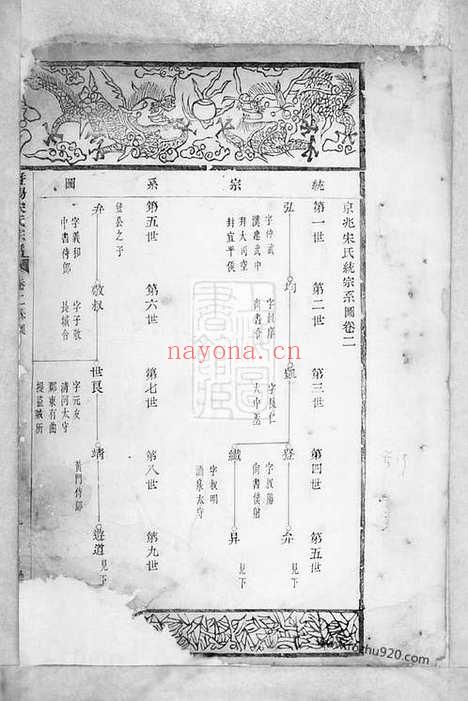 京兆宋氏統宗系圖卷二
統宗系圖
第一世 第二世 第三世 第四世 第五世
弘 均 凱 登 弁
字仲武
漢建武中
拜大司空
封宣平侯
字叔庠
尚書令
字長仁
大中丞
字叔陽
尚書僕射
見下
纖 昇
字叔明
酒泉太守
見下
第五世 第六世 第七世 第八世 第九世
登公之子
弁 敬叔 世良 靖 遊道
字義和
中書侍郎
字子敬
長城令
字元友
清河太守
郡東有曲
堤盜賊所
黃門侍郎
見下
宋氏宗譜
卷二
nayona.cn
kongfu920.com